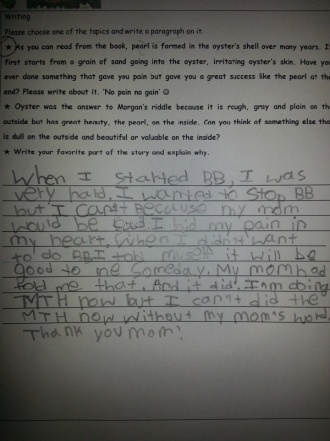 Writing
Please choose one of the topics and write a paragraph on it.
★ As you can read from the book, pearl is formed in the oyster's shell over many years. I
first starts from a grain of sand going into the oyster, irritating oyster's skin. Have you
ever done something that gave you pain but gave you a great success like the pearl at the
end? Please write about it. 'No pain no gain' ☺
★ Oyster was the answer to Morgan's riddle because it is rough, gray and plain on the
outside but has great beauty, the pearl, on the inside. Can you think of something else tha
is dull on the outside and beautiful or valuable on the inside?
★ Write your favorite part of the story and explain why.
When I started BB, I was
very hard. I wanted to stop BB
but I can't Because my mom
would be sad. I hid my pain in
my heart. When I didn't want
to do BB I told myself it will be
good to me someday. My mom had
told me that. And it did. I'm doing
MTH now but I can't did the
MTH now without my mom's word.
Thank you mom!